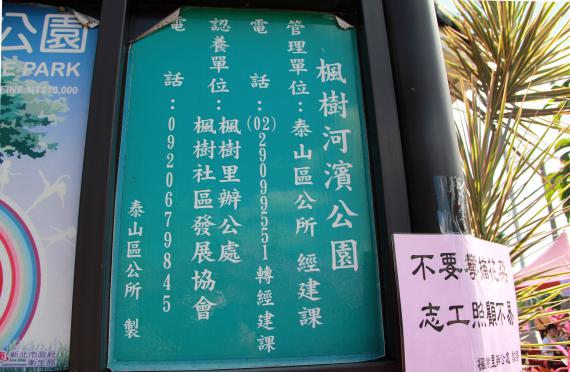 楓樹河濱公園
管理單位：泰山區公所 經建課
電話：(02)29099551轉經建課
認養單位：楓樹里辦公處
楓樹社區發展協會
電話：0920679845
泰山區公所 製
公園
E PARK
FINE:NT$10,000
新北市政府
衛生局
不要
摘花
志工照顧不易